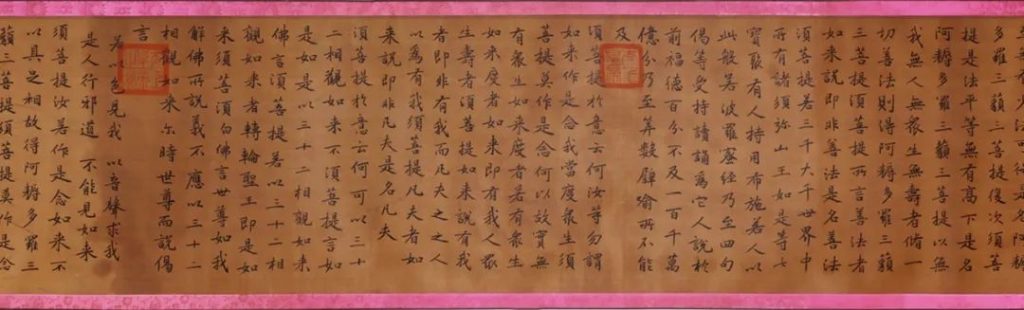 有少法可得是名阿耨
多羅三藐三菩提復次須菩
提是法平等無有高下是名
阿耨多羅三藐三菩提以無
我無人無衆生無壽者脩一
切善法則得阿耨多羅三藐
三菩提須菩提所言善法者
如来說即非善法是名善法
須菩提若三千大千世界中
所有諸須弥山王如是等七
寳聚有人持用布施若人以
此般若波羅蜜經乃至四句
偈等受持讀誦爲它人說於
前福德百分不及一百千萬
億分乃至筭數譬喻所不能
及
須菩提於意云何汝等勿謂
如来作是念我當度衆生須
菩提莫作是念何以故實無
有衆生如来度者若有衆生
如来度者如来即有我人衆
生壽者須菩提如来說有我
者即非有我而凡夫之人
以為有我須菩提凡夫者如
来說即非凡夫是名凡夫
須菩提於意云何可以三十
二相觀如来不須菩提言如
是如是以三十二相觀如来
佛言須菩提若以三十二相
觀如来者轉輪聖王即是如
来須菩提白佛言世尊如我
解佛所說義不應以三十二
相觀如来尒時世尊而說偈
言
若以色見我 以音聲求我
是人行邪道 不能見如来
須菩提汝若作是念如来不
以具足相故得阿耨多羅三
藐三菩提須菩提莫作是念